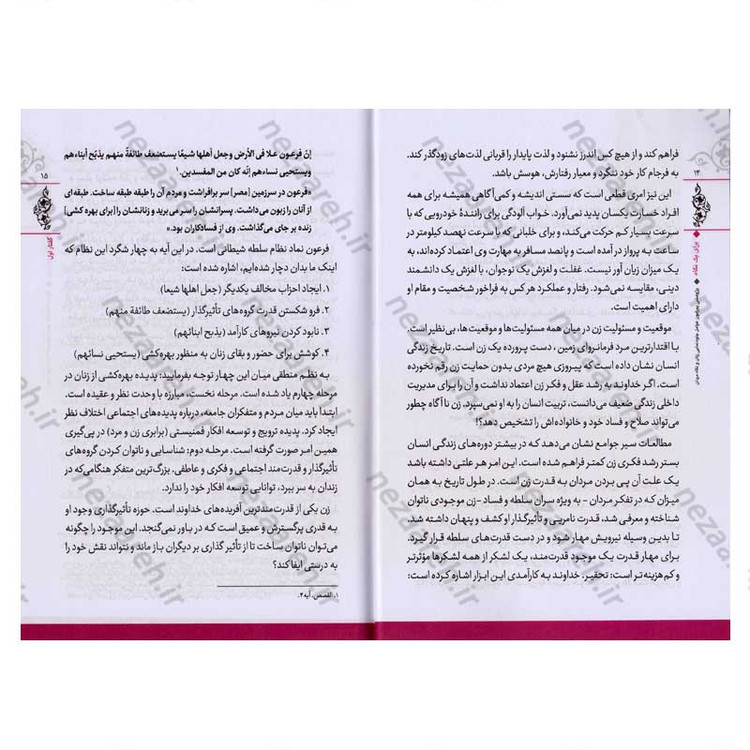 ۱۴
برای یک نگاه
فراهم کند و از هیچ کس اندرز نشنود و لذت پایدار را قربانی لذت‌های زودگذر کند.
به فرجام کار خود ننگرد و معیار رفتارش، هوسش باشد.
این نیز امری قطعی است که سستی اندیشه و کمی آگاهی همیشه برای همه
افراد خسارت یکسان پدید نمی‌آورد. خواب آلودگی برای رانندۀ خودرویی که با
سرعت بسیار کم حرکت می‌کند، و برای خلبانی که با سرعت نهصد کیلومتر در
ساعت به پرواز در آمده است و پانصد مسافر به مهارت وی اعتماد کرده‌اند، به
یک میزان زیان آور نیست. غفلت و لغزش یک نوجوان، با لغزش یک دانشمند
دینی، مقایسه نمی‌شود. رفتار و عملکرد هر کس به فراخور شخصیت و مقام او
دارای اهمیت است.
موقعیت و مسئولیت زن در میان همه مسئولیت‌ها و موقعیت‌ها، بی‌نظیر است.
با اقتدارترین مرد فرمانروای زمین، دست پرورده یک زن است. تاریخ زندگی
انسان نشان داده است که پیروزی هیچ مردی بدون حمایت زن رقم نخورده
است. اگر خداوند به رشد عقل و فکر زن اعتماد نداشت و آن را برای مدیریت
داخلی زندگی ضعیف می‌دانست، تربیت انسان را به او نمی‌سپرد. زن ناآگاه چطور
می‌تواند صلاح و فساد خود و خانواده‌اش را تشخیص دهد؟!
مطالعات سیر جوامع نشان می‌دهد که در بیشتر دوره‌های زندگی انسان
بستر رشد فکری زن کمتر فراهم شده است. این امر هر علتی داشته باشد
یک علت آن پی بردن مردان به قدرت زن است. در طول تاریخ به همان
میزان که در تفکر مردان - به ویژه سران سلطه و فساد- زن موجودی ناتوان
شناخته و معرفی شد، قدرت نامریی و تأثیرگذار او کشف و پنهان داشته شد.
تا بدین وسیله نیرویش مهار شود و در دست قدرت‌های سلطه قرار گیرد.
برای مهار قدرت یک موجود قدرت‌مند، یک لشکر از همه لشکرها مؤثرتر
و کم هزینه‌تر است: تحقیر. خداوند به کارآمدی این ابزار اشاره کرده است:
۱۵
گفتار اول
إنّ فرعون علا فی الأرض وجعل أهلها شیعًا یستضعف طائفةً منهم یذبّح أبناءهم
ویستحیی نساءهم إنّه کان من المفسدین.۱
«فرعون در سرزمین [مصر] سر برافراشت و مردم آن را طبقه طبقه ساخت. طبقه‌ای
از آنان را زبون می‌داشت. پسرانشان را سر می‌برید و زنانشان را [برای بهره کشی]
زنده بر جای می‌گذاشت. وی از فسادکاران بود.»
فرعون نماد نظام سلطه شیطانی است. در این آیه به چهار شگرد این نظام که
اینک ما بدان دچار شده‌ایم، اشاره شده است:
۱. ایجاد احزاب مخالف یکدیگر (جعل اهلها شیعا)
۲. فرو شکستن قدرت گروه‌های تأثیرگذار (یستضعف طائفة منهم)
۳. نابود کردن نیروهای کارآمد (یذبح ابنائهم)
۴. کوشش برای حضور و بقای زنان به منظور بهره‌کشی (یستحیی نسائهم)
به نظم منطقی میان این چهار توجه بفرمایید: پدیده بهره‌کشی از زنان در
مرحله چهارم یاد شده است. مرحله نخست، مبارزه با وحدت نظر و عقیده است.
ابتدا باید میان مردم و متفکران جامعه، درباره پدیده‌های اجتماعی اختلاف نظر
ایجاد کرد. پدیده ترویج و توسعه افکار فمنیستی (برابری زن و مرد) در پی‌گیری
همین امر صورت گرفته است. مرحله دوم: شناسایی و ناتوان کردن گروه‌های
تأثیرگذار و قدرت‌مند اجتماعی و فکری و عاطفی. بزرگ‌ترین متفکر هنگامی که در
زندان به سر ببرد، توانایی توسعه افکار خود را ندارد.
زن یکی از قدرت‌مندترین آفریده‌های خداوند است. حوزه تأثیرگذاری وجود او
به قدری پرگسترش و عمیق است که در باور نمی‌گنجد. این موجود را چگونه
می‌توان ناتوان ساخت تا از تأثیر گذاری بر دیگران باز ماند و نتواند نقش خود را
به درستی ایفا کند؟
۱. القصص، آیه۴.
nezaareh.ir